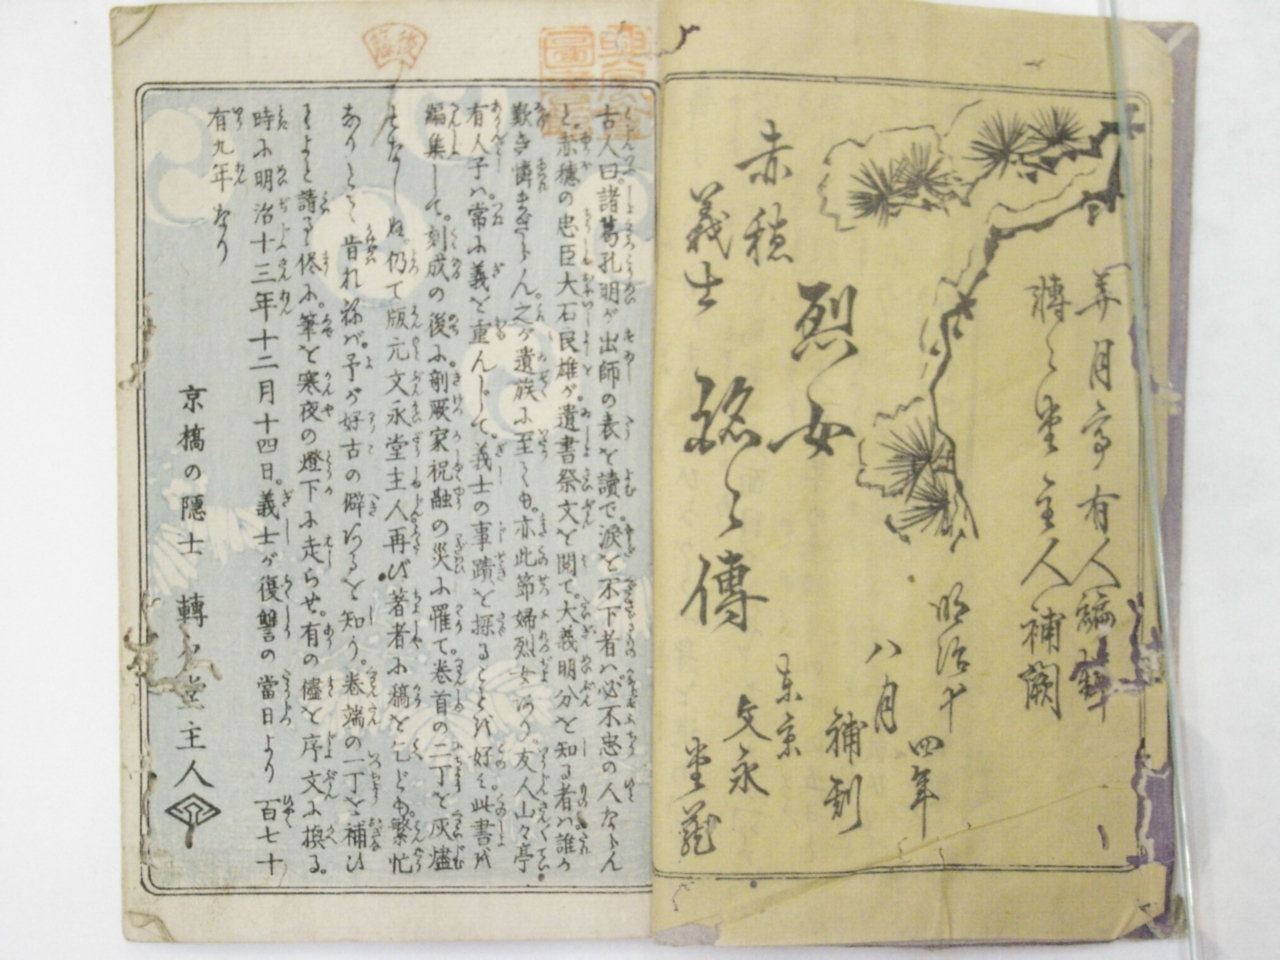 弄月亭有人編輯
轉々堂主人補闕
明治十四年
八月補刻
赤穂
義士
烈女
銘々傳
東京
文永堂藏
古人曰。諸葛孔明が出師の表を讀で。涙を不下者ハ必不忠の人ならん
と。赤穂の忠臣大石良雄が遺書祭文を閲て。大義明分を知る者ハ誰か
歎き憐まざらん。之が遺族に至るも。亦此節婦烈女あり。友人山々亭
有人子ハ。常に義を重んじて。義士の事蹟を探ることを好み。此書を
編集して。刻成の後に。剞厥家祝融の災に罹て。巻首の二丁を灰燼
となしぬ。仍て版元文永堂主人再び著者に稿を乞ども。繁忙
ありとて肯れねバ。予が好古の僻あるを知り。巻端の一丁を補ひ
てよと請るゝ侭に。筆を寒夜の燈下に走らせ。有の儘を序文に換る。
時に明治十三年十二月十四日。義士が復讐の當日より 百七十
有九年なり
京橋の隱士 轉々堂主人